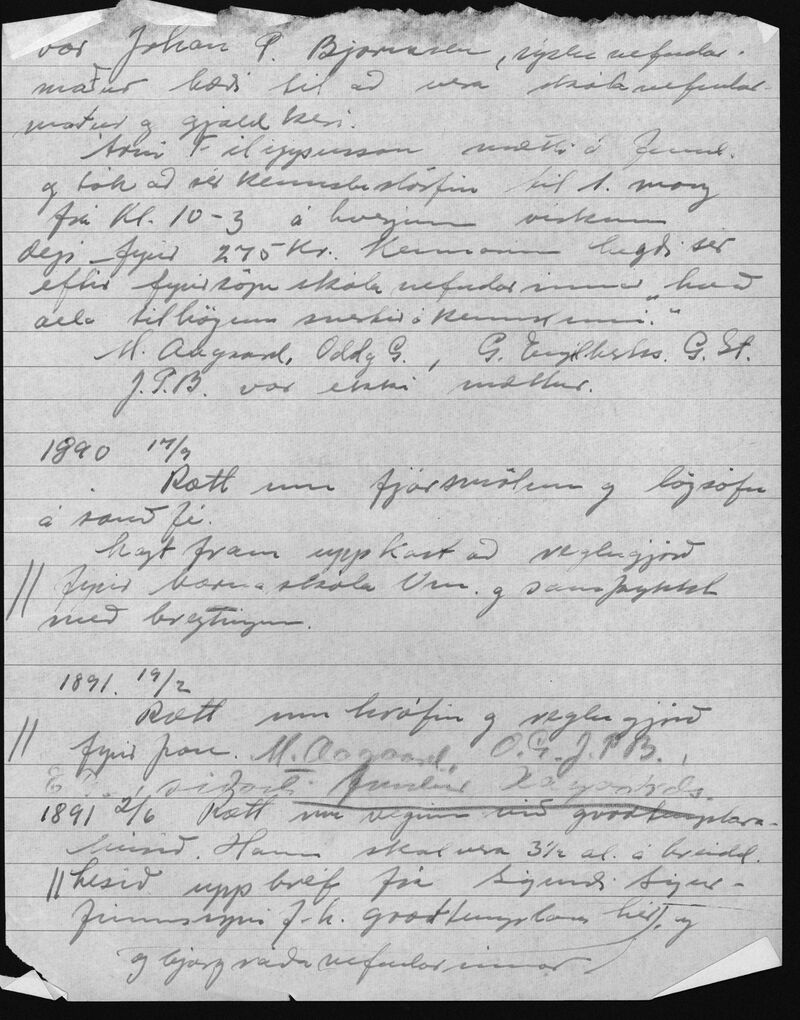 var Johan P. Bjarnasen, sýslunefndar-
maður bæði til að vera skólanefndar-
maður og gjaldkeri.
Árni Filippusson mætti á fund.
og tók að sér kennslustörfin til 1. marz
frá Kl. 10-3 á hverjum virkum
degi fyrir 275 Kr. Kennarinn hegði sér
eftir fyrirsögn skólanefndarinnar, "hvað
alla tilhögun snertir á kennslunni."
M. Aagaard, Oddg G., G. Engilberts. G. St.
J.P.B. var ekki mættur.
1890 17/9
Rætt um fjármálum og
á sauðfé.
Lagt fram uppkast að reglugjörð
// fyrir barnaskóla Vm. og samþykkt
með breytingum.
1891. 19/2
Rætt um og reglugjörð
// fyrir þau. M. Aagaard, O.G. J.P.B.,
síðasti fundur Aagaards.
1891 2/6 Rætt um veginn við goodtemplara-
húsið. Hann skal vera 3 1/2 al. á breidd.
// Lesið upp bréf frá Sigurði Sigur-
finnssyni f.h. goodtemplara hér, og
og bjargráðanefndarinnar